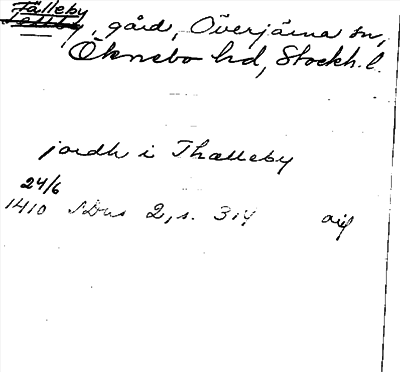 Fälleby
Tellby, gård, Överjärna sn,
Öknebo hd, Stockh. l.
jordh i Thælleby
24/6
1410 SDns 2, s. 314